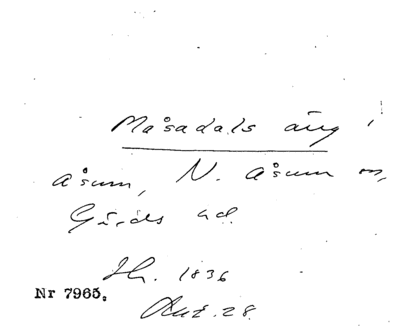 Måsadals äng
Åsum, N. Åsum sn,
Gärds hd.
Sk. 1836
Nr 7965.
Akt. 28